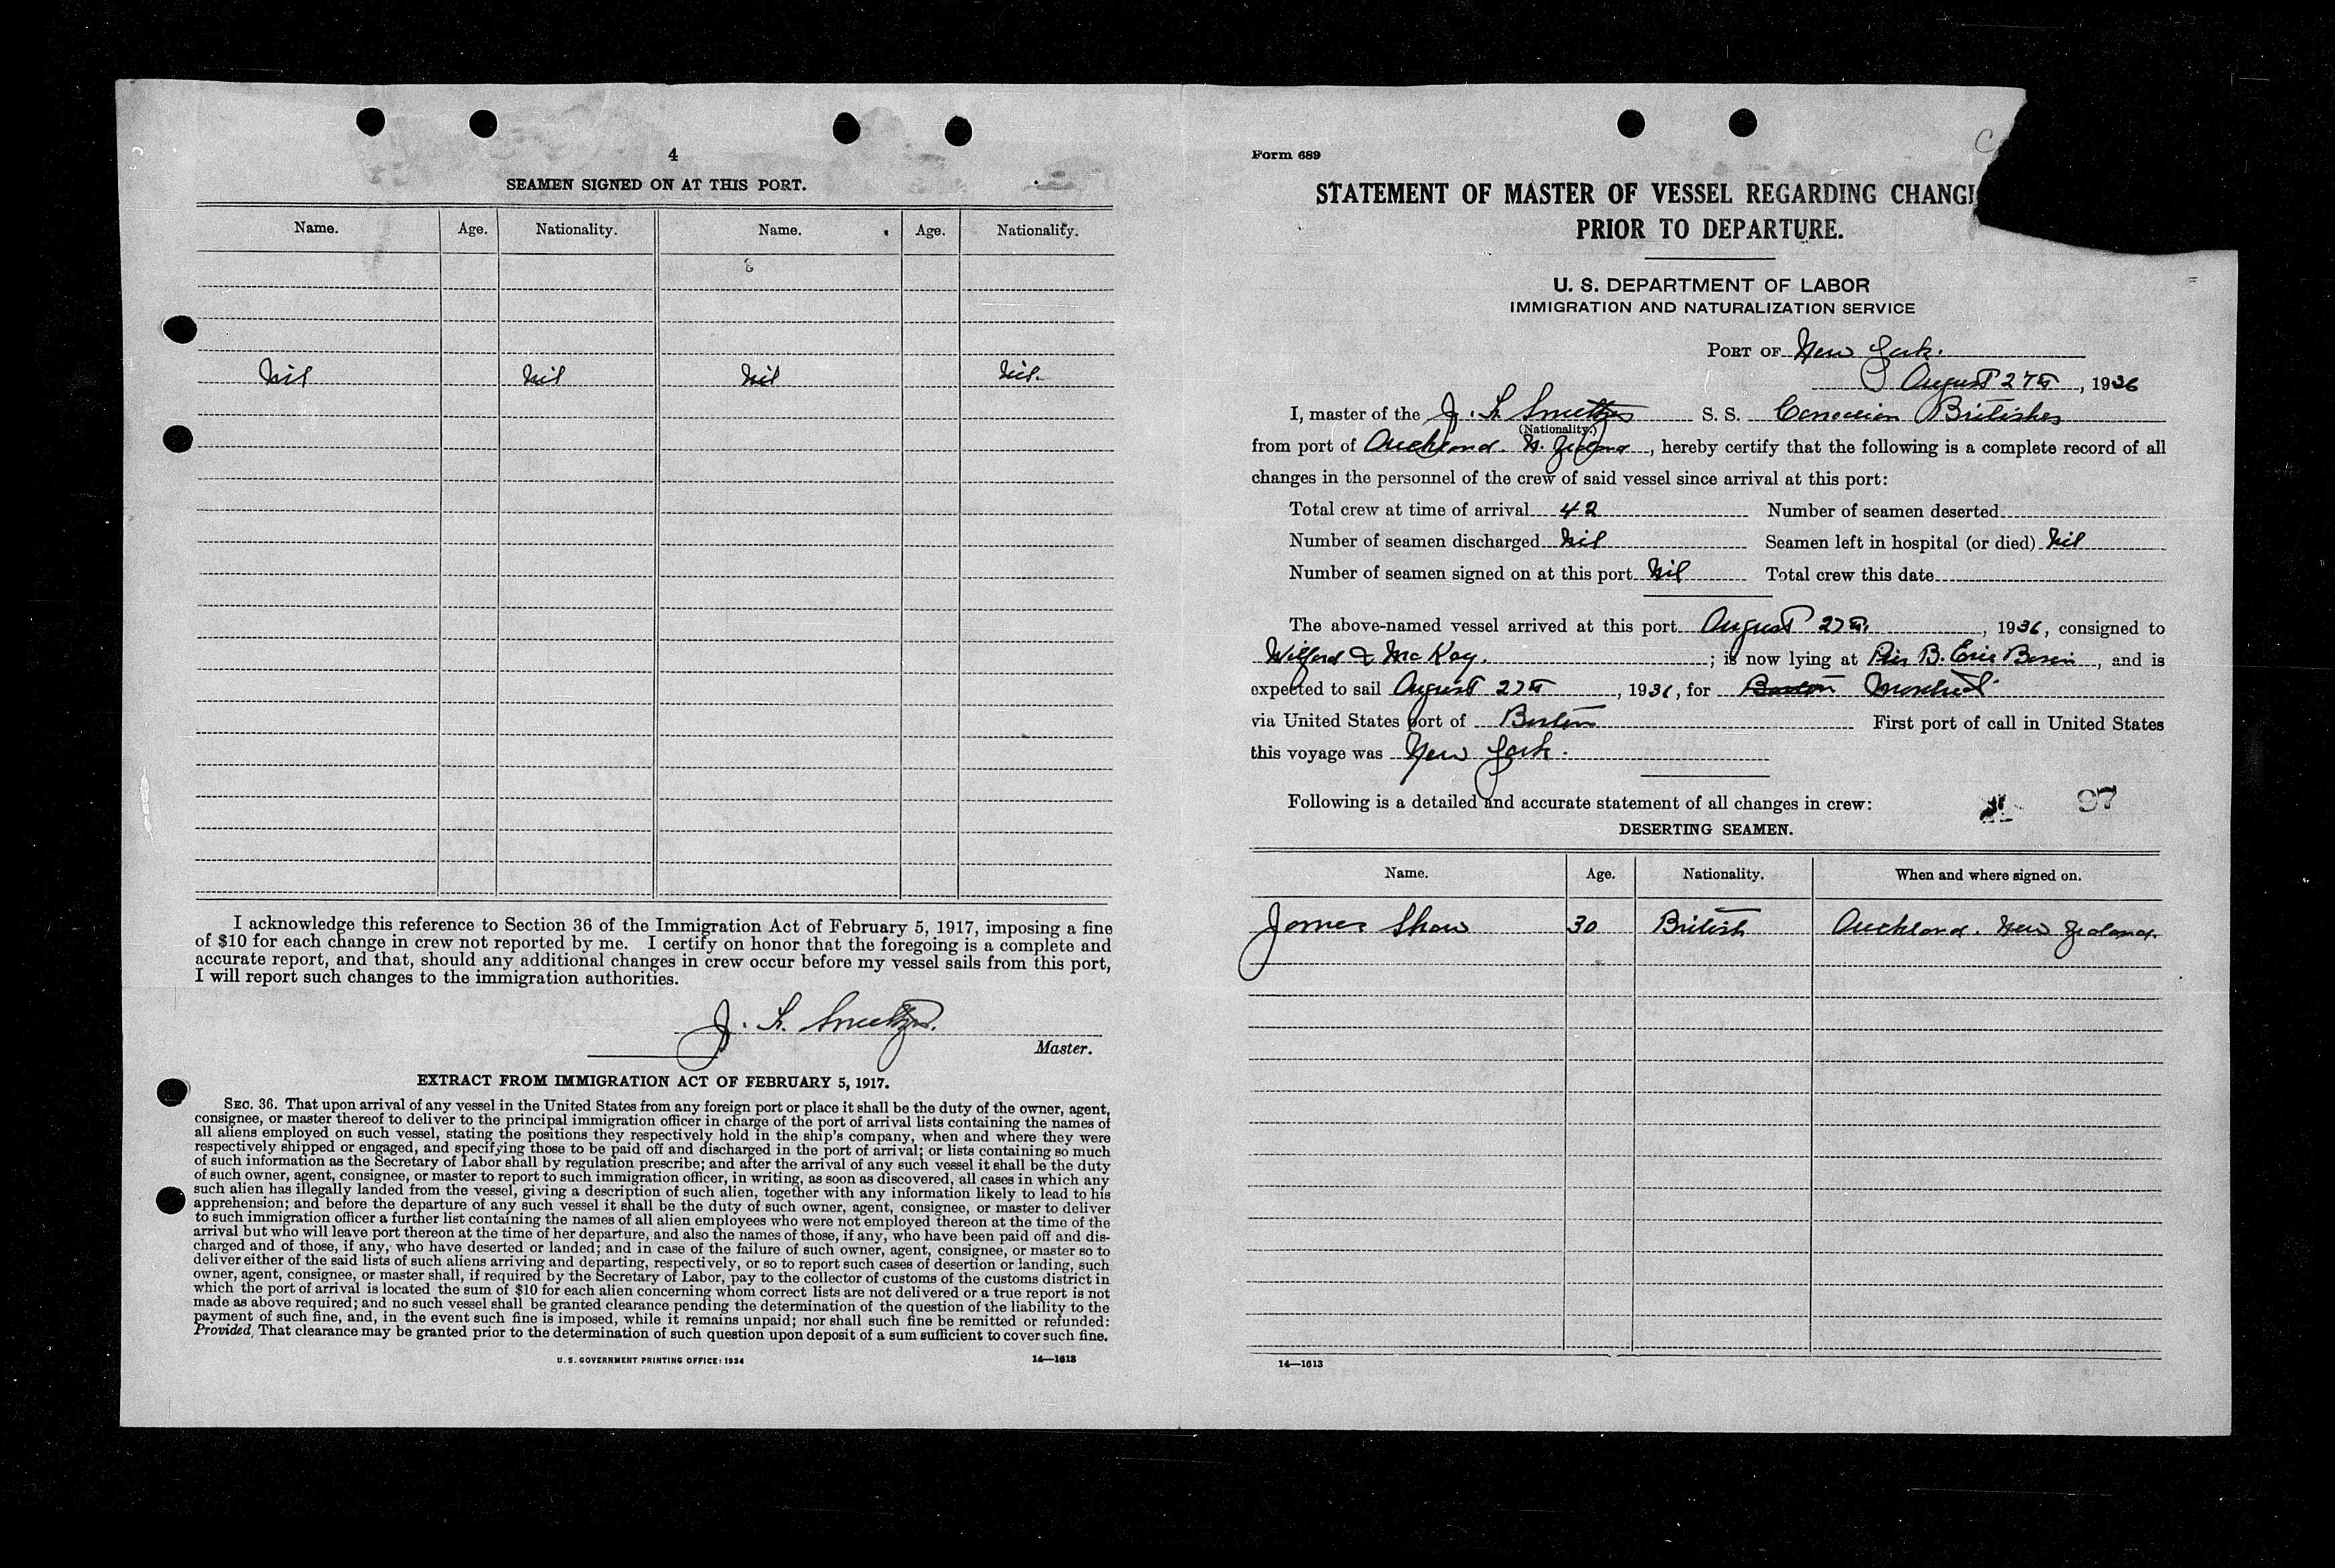 4
SEAMEN SIGNED ON AT THIS PORT.
Name. Age. Nationality. Name. Age. Nationality.
Nil Nil Nil Nil.
I acknowledge this reference to Section 36 of the Immigration Act of February 5, 1917, imposing a fine
of $10 for each change in crew not reported by me. I certify on honor that the foregoing is a complete and
accurate report, and that, should any additional changes in crew occur before my vessel sails from this port,
I will report such changes to the immigration authorities.
J.
Master.
EXTRACT FROM IMMIGRATION ACT OF FEBRUARY 5, 1917.
SEC. 36. That upon arrival of any vessel in the United States from any foreign port or place it shall be the duty of the owner, agent,
consignee, or master thereof to deliver to the principal immigration officer in charge of the port of arrival lists containing the names of
all aliens employed on such vessel, stating the positions they respectively hold in the ship's company, when and where they were
respectively shipped or engaged, and specifying those to be paid off and discharged in the port of arrival; or lists containing so much
of such information as the Secretary of Labor shall by regulation prescribe; and after the arrival of any such vessel it shall be the duty
of such owner, agent, consignee, or master to report to such immigration officer, in writing, as soon as discovered, all cases in which any
such alien has illegally landed from the vessel, giving a description of such alien, together with any information likely to lead to his
apprehension; and before the departure of any such vessel it shall be the duty of such owner, agent, consignee, or master to deliver
to such immigration officer a further list containing the names of all alien employees who were not employed thereon at the time of the
arrival but who will leave port thereon at the time of her departure, and also the names of those, if any, who have been paid off and dis-
charged and of those, if any, who have deserted or landed; and in case of the failure of such owner, agent, consignee, or master so to
deliver either of the said lists of such aliens arriving and departing, respectively, or so to report such cases of desertion or landing, such
owner, agent, consignee, or master shall, if required by the Secretary of Labor, pay to the collector of customs of the customs district in
which the port of arrival is located the sum of $10 for each alien concerning whom correct lists are not delivered or a true report is not
made as above required; and no such vessel shall be granted clearance pending the determination of the question of the liability to the
payment of such fine, and, in the event such fine is imposed, while it remains unpaid; nor shall such fine be remitted or refunded:
Provided, That clearance may be granted prior to the determination of such question upon deposit of a sum sufficient to cover such fine.
U. S. GOVERNMENT PRINTING OFFICE: 1934 14—1613
Form 689
STATEMENT OF MASTER OF VESSEL REGARDING CHANGI
PRIOR TO DEPARTURE.
U. S. DEPARTMENT OF LABOR
IMMIGRATION AND NATURALIZATION SERVICE
PORT OF New York.
August 27th, 1936
I, master of the J. S. S. Canadian Britisher
(Nationality.)
from port of Auckland. N. Zealand, hereby certify that the following is a complete record of all
changes in the personnel of the crew of said vessel since arrival at this port:
Total crew at time of arrival 42 Number of seamen deserted
Number of seamen discharged Nil Seamen left in hospital (or died) Nil
Number of seamen signed on at this port Nil Total crew this date
The above-named vessel arrived at this port August 27th, 1936, consigned to
& McKay. ; is now lying at Pier B. Erie Basin, and is
expected to sail August 27th, 1936, for Boston Montreal
via United States port of Boston First port of call in United States
this voyage was New York.
Following is a detailed and accurate statement of all changes in crew: 97
DESERTING SEAMEN.
Name. Age. Nationality. When and where signed on.
James Shaw 30 British Auckland. New Zealand.
14—1613